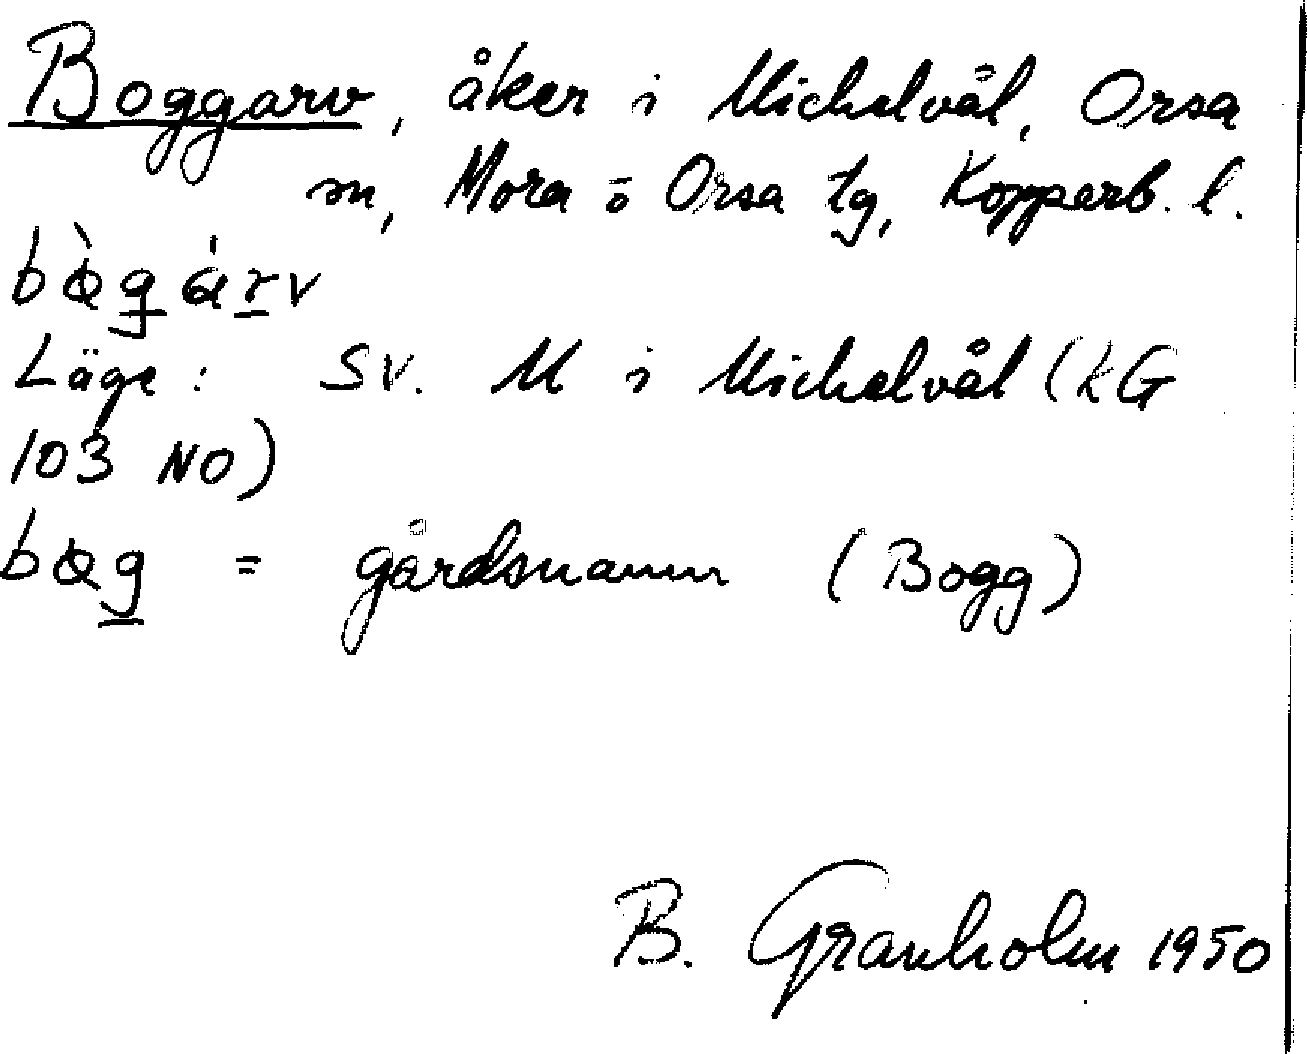 Boggarv, åker i Michelvål, Orsa
sn, Mora o Orsa tg, Kopparb. l.
bò̵g á r v
Läge: SV. M i Michelvål (kG
103 NO)
bɵg = gårdsnamn (Bogg)
B. Granholm 1950